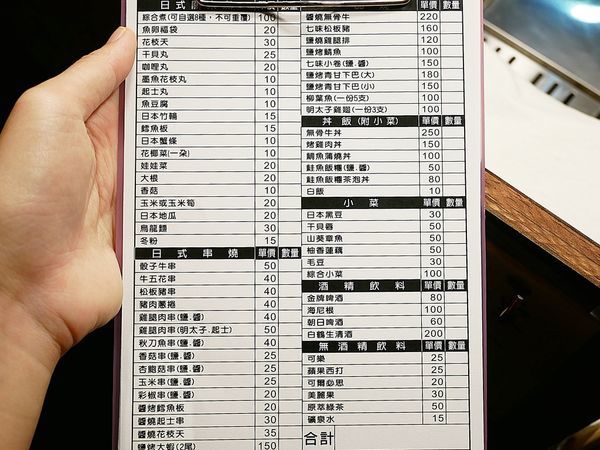 日式
綜合煮(可自選8種，不可重覆) 100
魚卵福袋 20
花枝天 30
干貝丸 25
咖哩丸 20
墨魚花枝丸 10
起士丸 10
魚豆腐 10
日本竹輪 15
鱈魚板 15
日本蟹條 10
花椰菜(一朵) 10
娃娃菜 20
大根 20
香菇 10
玉米或玉米筍 20
日本地瓜 20
烏龍麵 30
冬粉 15
日式串燒 單價 數量
骰子牛串 50
牛五花串 40
松板豬串 40
豬肉蔥捲 40
雞腿肉串(鹽.醬) 40
雞腿肉串(明太子.起士) 50
秋刀魚串(鹽.醬) 40
香菇串(鹽.醬) 25
杏鮑菇串(鹽.醬) 25
玉米串(鹽.醬) 25
彩椒串(鹽.醬) 20
醬烤鱈魚板 20
醬燒起士串 30
醬燒花枝天 35
鹽烤大蝦(2尾) 150
單價 數量
醬燒無骨牛 220
七味松板豬 160
鹽燒雞腿排 120
鹽烤鯖魚 100
七味小卷(鹽.醬) 100
鹽烤青甘下巴(大) 180
鹽烤青甘下巴(小) 150
柳葉魚(一份5支) 100
明太子雞翅(一份3支) 100
丼飯(附小菜) 單價 數量
無骨牛丼 250
烤雞肉丼 150
鯛魚蒲燒丼 100
鮭魚飯糰(鹽.醬) 50
鮭魚飯糰茶泡丼 80
白飯 10
小菜 單價 數量
日本黑豆 30
干貝唇 50
山葵章魚 50
柚香蓮藕 50
毛豆 30
綜合小菜 100
酒精飲料 單價 數量
金牌啤酒 80
海尼根 100
朝日啤酒 60
白鶴生清酒 200
無酒精飲料 單價 數量
可樂 25
蘋果西打 25
可爾必思 20
美麗果 30
原萃綠茶 50
礦泉水 15
合計